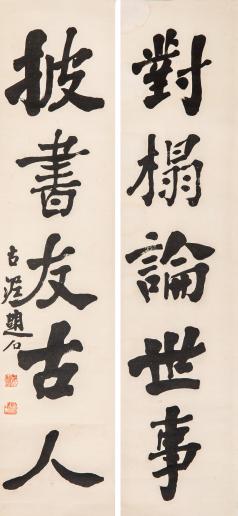 對榻論世事
披書友古人
古泥趙石